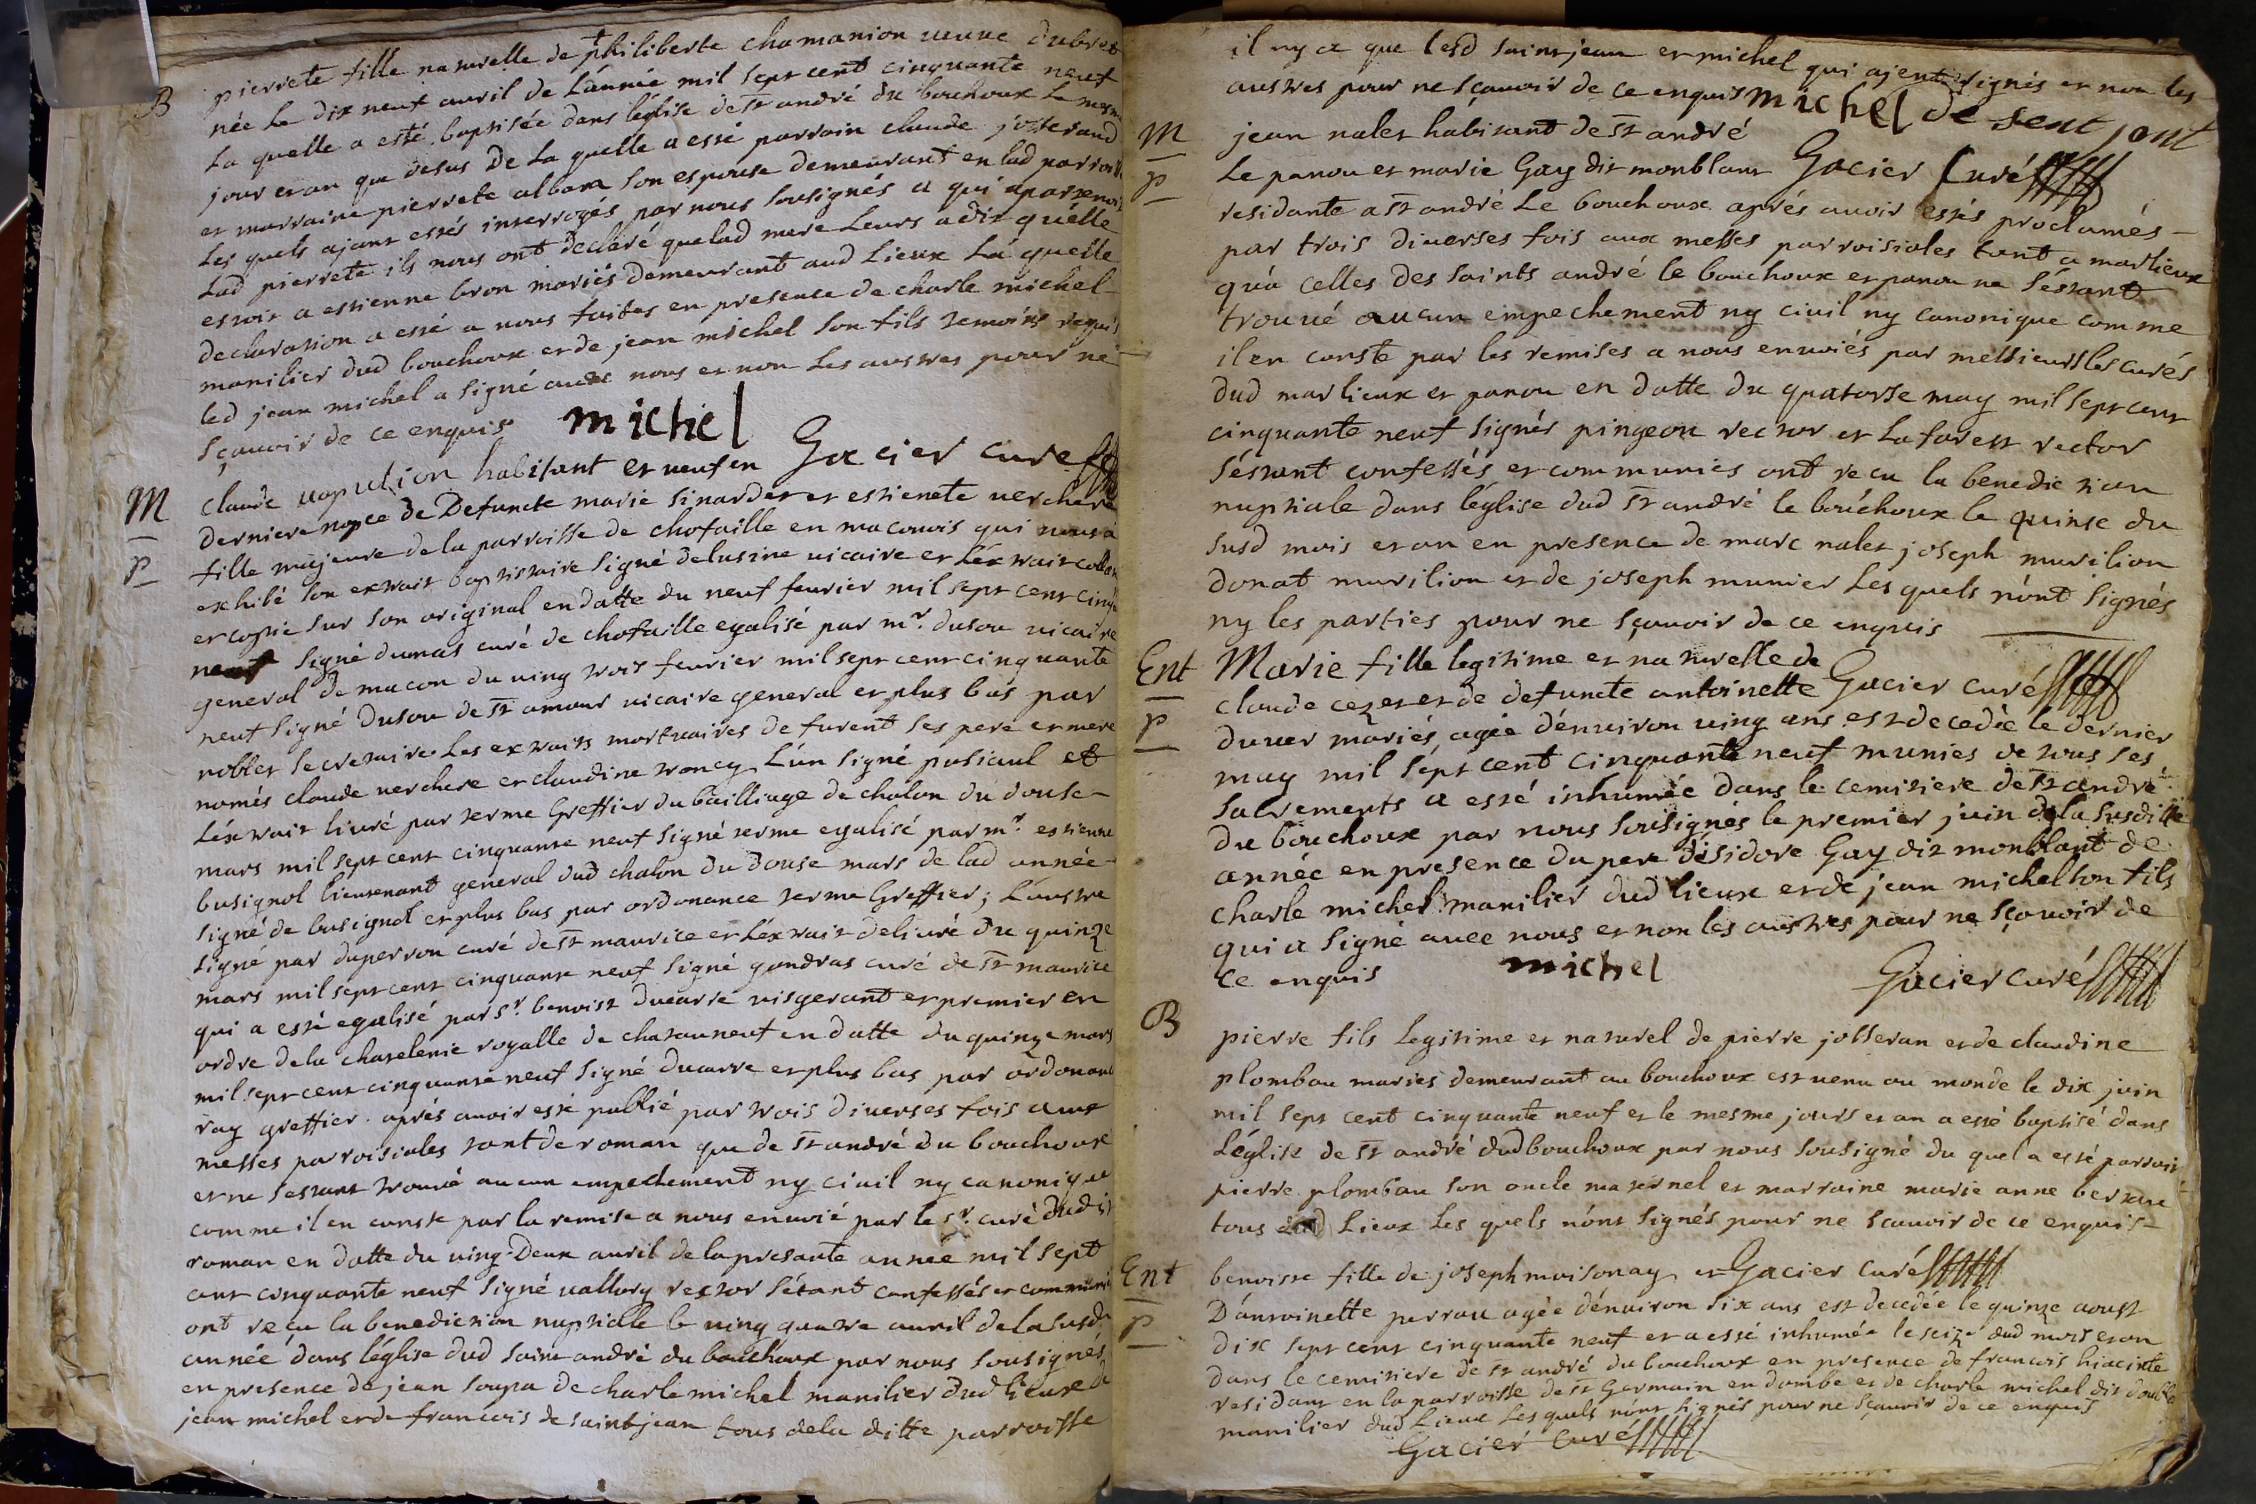 B
pierrete fille naturelle de philiberte chamanion veuve dubret
née le dix neuf auril de L'année mil sept cent cinquante neuf
La quelle a esté baptisée dans l'église de st andré du bouchoux le mesme
jour et an que desus de La quelle a esté parrain claude josserand
et marraine pierrete albana son espouse demeurant en lad parroisse
Les quels ajant estés interrogés par nous sousignés a qui apartenoit
Lad pierrete ils nous ont declaré que lad mere Leurs a dit qu'elle
estoit a estienne bron mariés demeurant aud Lieux La quelle
declaration a esté a nous faites en presence de charle michel
manilier dud bouchoux et de jean michel son fils temoins requis
led jean michel a signé avec nous et non Les autres pour ne
sçauoir de ce enquis michel
Gacier curé
M
p
claude uapution habitant et ueuf en
derniere nopce de Defuncte marie sinardet et estienete uerchere
fille majeure de la parroisse de chofaille en maconois qui nous a
exhibé son extrait baptistaire signé delusine uicaire et L'éxtrait
et copie sur son original en datte du neuf feurier mil sept cent cinqu
neuf signé dumas curé de chofaille egalisé par mr. dusou uicaire
general de macon du uing trois feurier mil sept cent cinquante
neuf signé dusou de st amour uicaire general et plus bas par
noblet secretaire. Les extraits mortuaires de furent ses pere et mere
només claude uerchere et claudine troncy L'ún signé pasiaul et
L'éxtrait liuré par terme Greffier du bailliage de chalon du douse
mars mil sept cent cinquante neuf signé terme egalisé par mr. estienne
busignol lieutenant general dud chalon du douse mars de lad année
signé de busignol et plus bas par ordonance terme Greffier; L'autre
signé par duperron curé de st maurice et L'éxtrait deliuré du quinze
mars mil sept cent cinquante neuf signé gondras curé de st maurice
qui a esté egalisé par sr. benoist ducarre uisgerant et premier en
ordre de la chatelenie royalle de chatauneuf en datte du quinze mars
mil sept cent cinquante neuf signé ducarre et plus bas par ordonance
ray greffier. aprés auoir esté publié par trois diuerses fois aux
messes parroisiales tant de roman que de st andré du bouchoux
et ne s'estant trouué aucun empechement ny ciuil ny canonique
comme il en conste par la remise a nous enuoié par le sr. curé dud
roman en datte du uing-Deux auril de la presante année mil sept
cent cinquante neuf signé uallory rector s'étant confessés et communiés
ont reçu la benediction nuptialle le uing quatre auril de la susd
année dans l'église dud saint andré du bouchoux par nous sousignés
en presence de jean soupa de charle michel manilier dud lieux de
jean michel et de francois de saint jean tous de la ditte parroisse
il ny a que lesd saint jean et michel qui ajent signés et non les
autres pour ne sçauoir de ce enquis michel de sent jont
M
p
jean nalet habitant de st andré
Le panou et marie Gay dit monblant Gacier Curé
residante a st andré Le bouchoux aprés auoir estés proclamés
par trois diuerses fois aux messes parroisiales tant a marlieux
qu'a celles des saints andré le bouchoux et panou ne s'estant
trouué aucun empechement ny ciuil ny canonique comme
il en conste par les remises a nous enuoiés par messieurs les curés
dud marlieux et panou en datte du quatorse may mil sept cent
cinquante neuf signés pingeon rector et Laforest rector
s'éstant confessés et communiés ont recu la benediction
nuptiale dans l'église dud st andré le bouchoux le quinse du
susd mois et an en presence de marc nalet joseph murilion
donat murilion et de joseph munier Les quels n'ont signés
ny les parties pour ne sçauoir de ce enquis
Ent
p
Marie fille legitime et naturelle de
claude cezet et de defuncte antoinette Gacier curé
duuer mariés agée d'enuiron uing ans est decedée le dernier
may mil sept cent cinquante neuf munies de tous ses
sacrements a esté inhumée dans le cemitiere de st andré
du bouchoux par nous sousignés le premier juin de la susditte
année en presence du pere d'isidore Gay dit monblant de
charle michel manilier dud lieux et de jean michel son fils
qui a signé auec nous et non les autres pour ne sçouoir de
ce enquis michel Gacier curé
B
pierre fils Legitime et naturel de pierre josseran et de claudine
plombau mariés demeurant au bouchoux est uenu au monde le dix juin
mil sept cent cinquante neuf et le mesme jours et an a esté baptisé dans
L'église de st andré dud bouchoux par nous sousigné du quel a esté parrain
pierre plombau son oncle maternel et marraine marie anne
tous aud Lieux Les quels n'ont signés pour ne sçauoir de ce enquis
Ent
p
benoiste fille de joseph moisonay et Gacier curé
D'antoinette perrau agée d'enuiron six ans est decedée le quinze aoust
dix sept cent cinquante neuf et a esté inhumée le seize dud mois et an
dans le cemitiere de st andré du bouchoux en presence de francois hiacinte
residant en la parroisse de st Germain en dombe et de charle michel dit
manilier dud Lieux Les quels n'ont signés pour ne sçauoir de ce enquis
Gacier curé